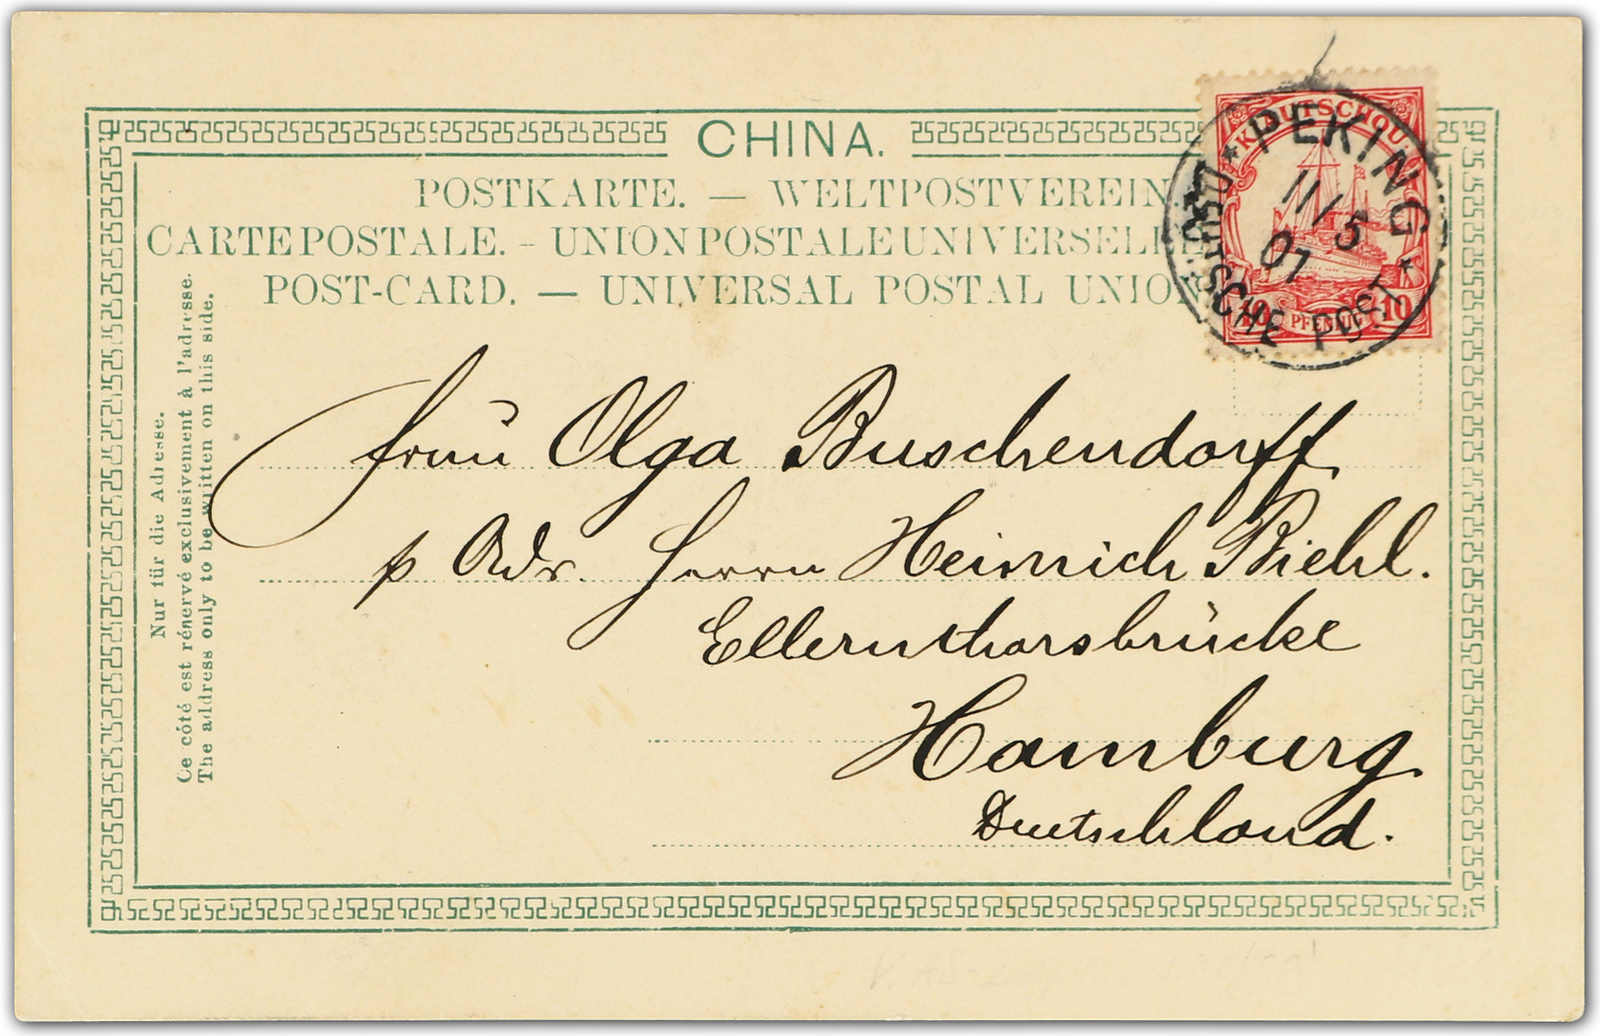 CHINA.
POSTKARTE. — WELTPOSTVEREIN.
CARTE POSTALE. - UNION POSTALE UNIVERSELLE
POST-CARD. — UNIVERSAL POSTAL UNION
KIAUTSCHOU
10 PFENNIG 10
PEKING
11/5
01
DEUTSCHE POST
Nur für die Adresse.
Ce côté est rénervé exclusivement à l'adresse.
The address only to be written on this side.
Frau Olga Buschendorff
p Adr. Herrn Heinrich Biehl.
Ellernthorsbrücke
Hamburg
Deutschland.